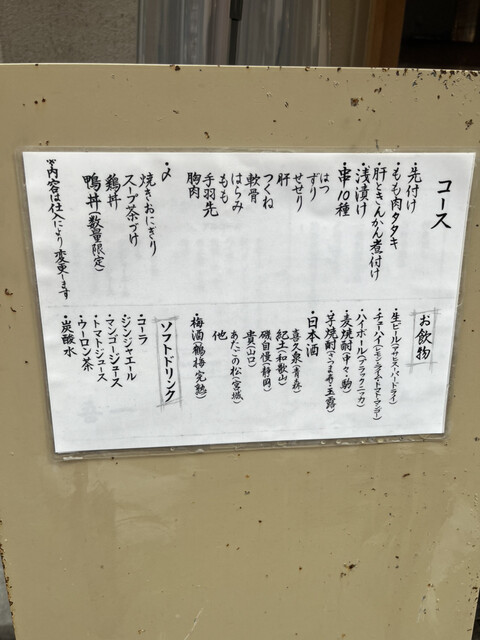 コース
・先付け
・もも肉タタキ
・肝ときんかん煮付け
・浅漬け
・串10種
はつ
ずり
せせり
肝
つくね
軟骨
はらみ
もも
手羽先
胸肉
・〆
焼きおにぎり
スープ茶づけ
鶏丼
鴨丼(数量限定)
※内容は仕入により変更します
お飲物
・生ビール(アサヒスーパードライ)
・チューハイ(レモン・ライム・トマト・マンゴー)
・ハイボール(ブラックニッカ)
・麦焼酎(中々・駒)
・芋焼酎(さつま寿・玉露)
・日本酒
喜久泉(青森)
紀土(和歌山)
磯自慢(静岡)
貴(山口)
あたごの松(宮城)
他
・梅酒(鶴梅完熟)
ソフトドリンク
・コーラ
・ジンジャエール
・マンゴージュース
・トマトジュース
・ウーロン茶
・炭酸水